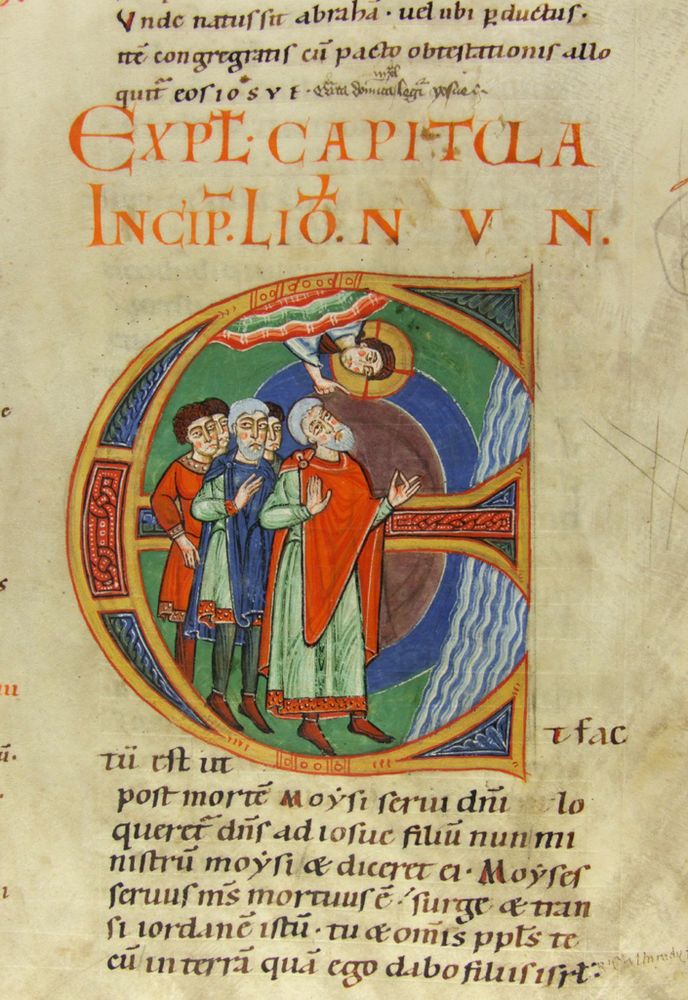 Vnde natus sit abrahā · uel ubi ꝑductus ·
itē congregatis cū pacto obtestationis allo
quit̄ eos iosue ·
EXPL̄ · CAPITULA
INCIP̄ · LIƀ · NUN.
Et fac
tū est ut
post mortē Moẏsi serui dn̄i lo
queret̄ dn̄s ad iosue filiū nun mi
nistrū moẏsi & diceret ei · Moẏses
seruus ms̄ mortuus ē · surge & tran
si iordanē istū · tu & omīs ppl̄s te
cū in terrā quā ego dabo filiis isrl̄ ·